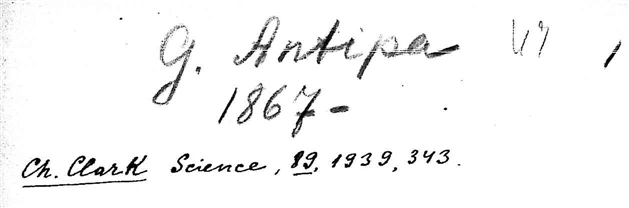 G. Antipa
1867-
Ch. Clark Science, 89, 1939, 343.